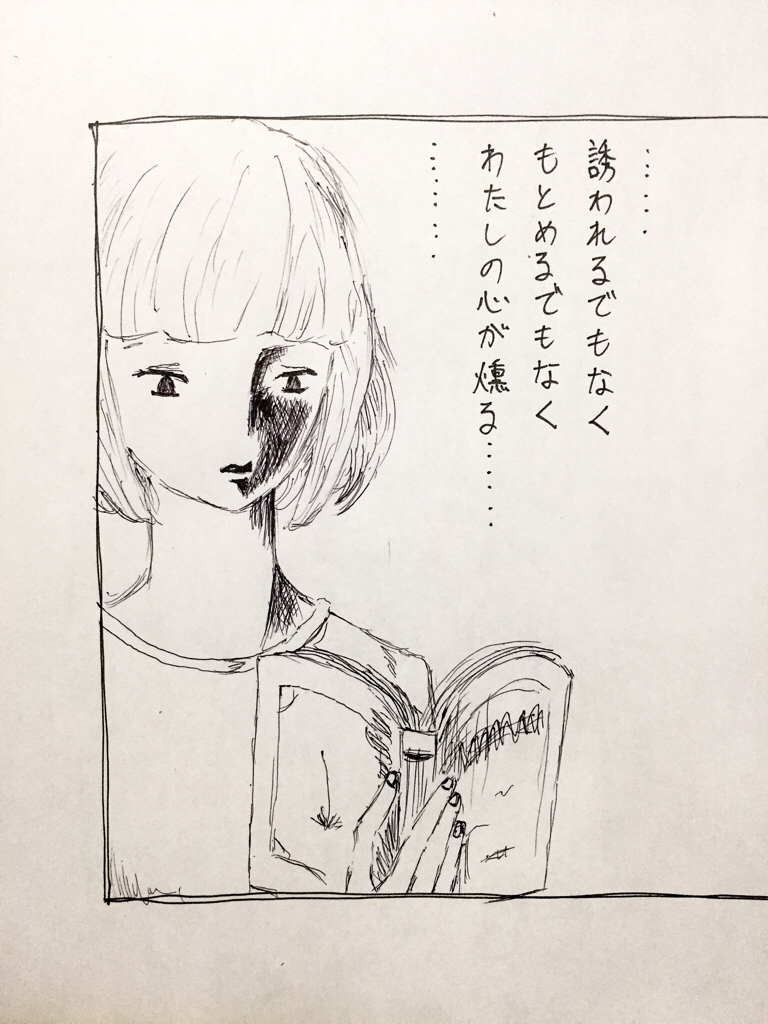 ‥‥
誘われるでもなく
もとめるでもなく
わたしの心が燻る‥‥‥
‥‥‥